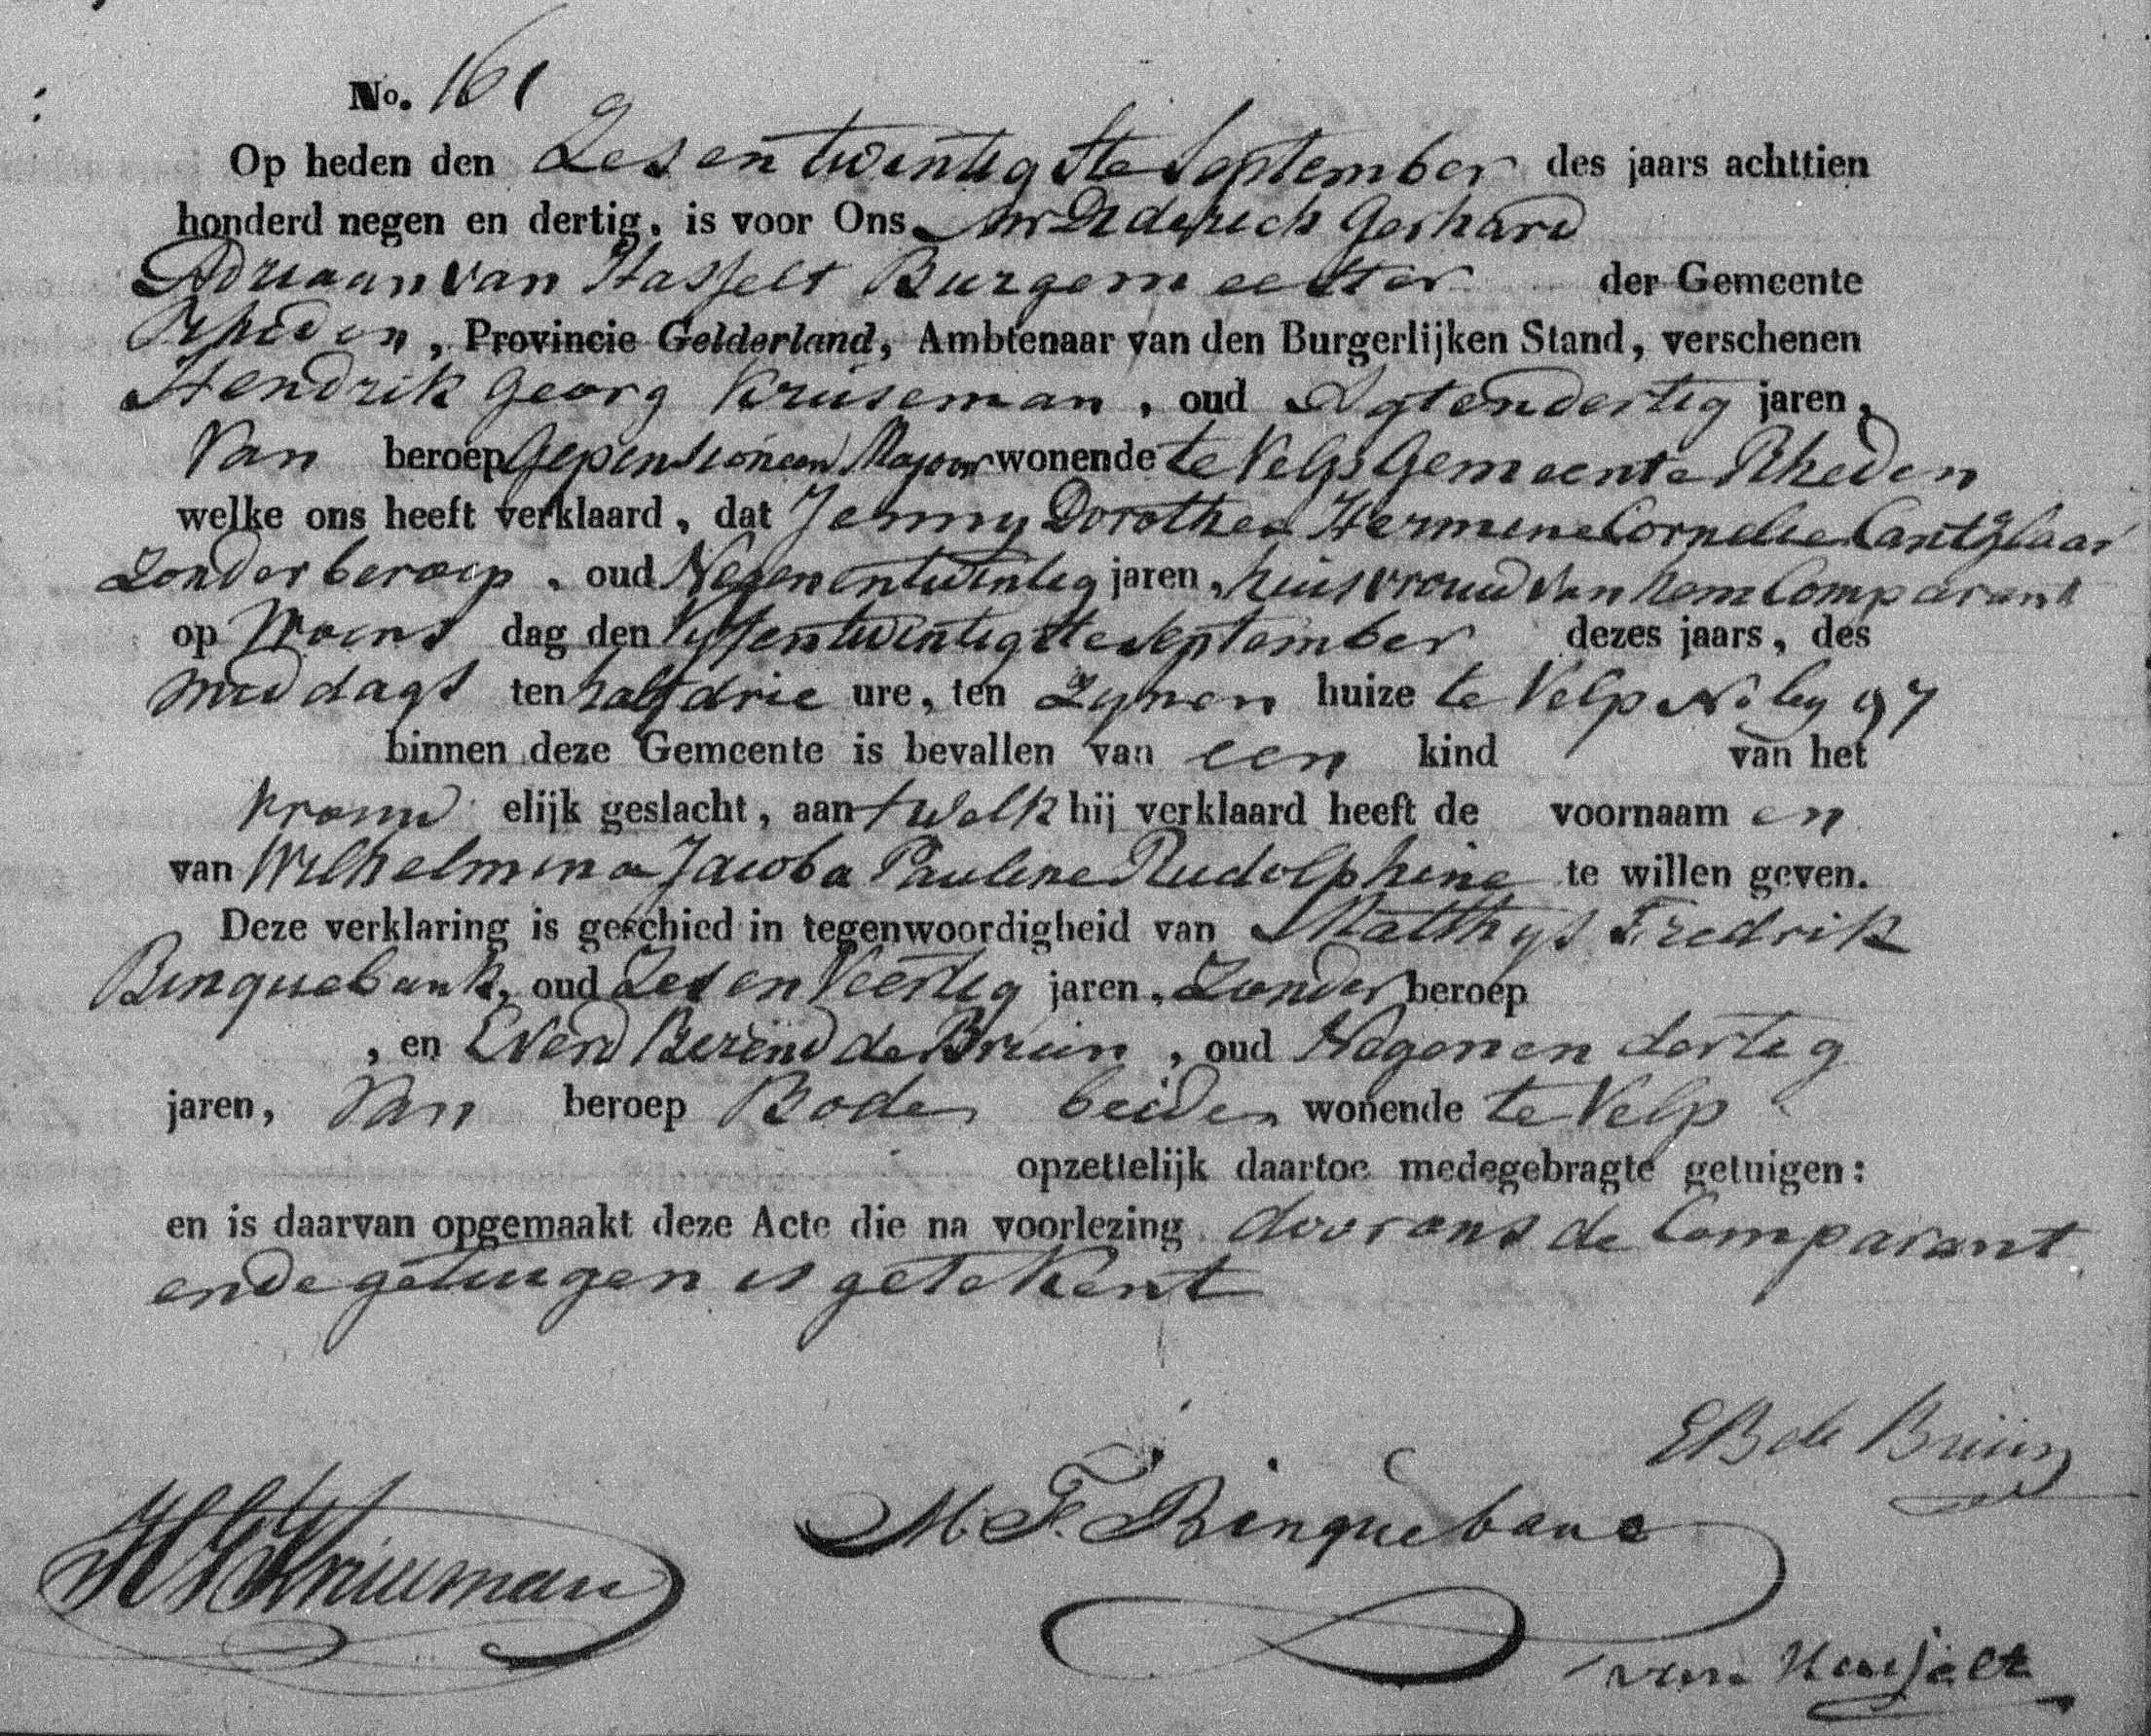 No. 161
Op heden den Zes en twintigste September des jaars achttien
honderd negen en dertig, is voor Ons Mr Diderich Gerhard
Adriaan van Hasselt Burgemeester der Gemeente
Rheden, Provincie Gelderland, Ambtenaar van den Burgerlijken Stand, verschenen
Hendrik Georg Kruseman, oud Agtendertig jaren,
Van beroep Gepensioneerd Majoor wonende te Velp Gemeente Rheden
welke ons heeft verklaard, dat Jenny Dorothea Hermine Cornelie Cantzlaar
Zonder beroep, oud Negenentwintig jaren, huisvrouw van hem Comparant
op Woens dag den Vyfentwintigste September dezes jaars, des
middags ten half drie ure, ten Zynen huize te Velp No 97
binnen deze Gemeente is bevallen van een kind van het
vrouw elijk geslacht, aan twelk hij verklaard heeft de voornaam en
van Wilhelmina Jacoba Pauline Rudolphine te willen geven.
Deze verklaring is geschied in tegenwoordigheid van Matthys Fredrik
Binquebank, oud Zes en Veertig jaren, Zonder beroep
, en Everd Berend de Bruin, oud Negen en dertig
jaren, Van beroep Bode, beiden wonende te Velp
opzettelijk daartoe medegebragte getuigen:
en is daarvan opgemaakt deze Acte die na voorlezing door ons de Comparant
en de getuigen is getekent
EB de Bruin
M. F. Binquebanc
HG Kruseman
van Hasselt